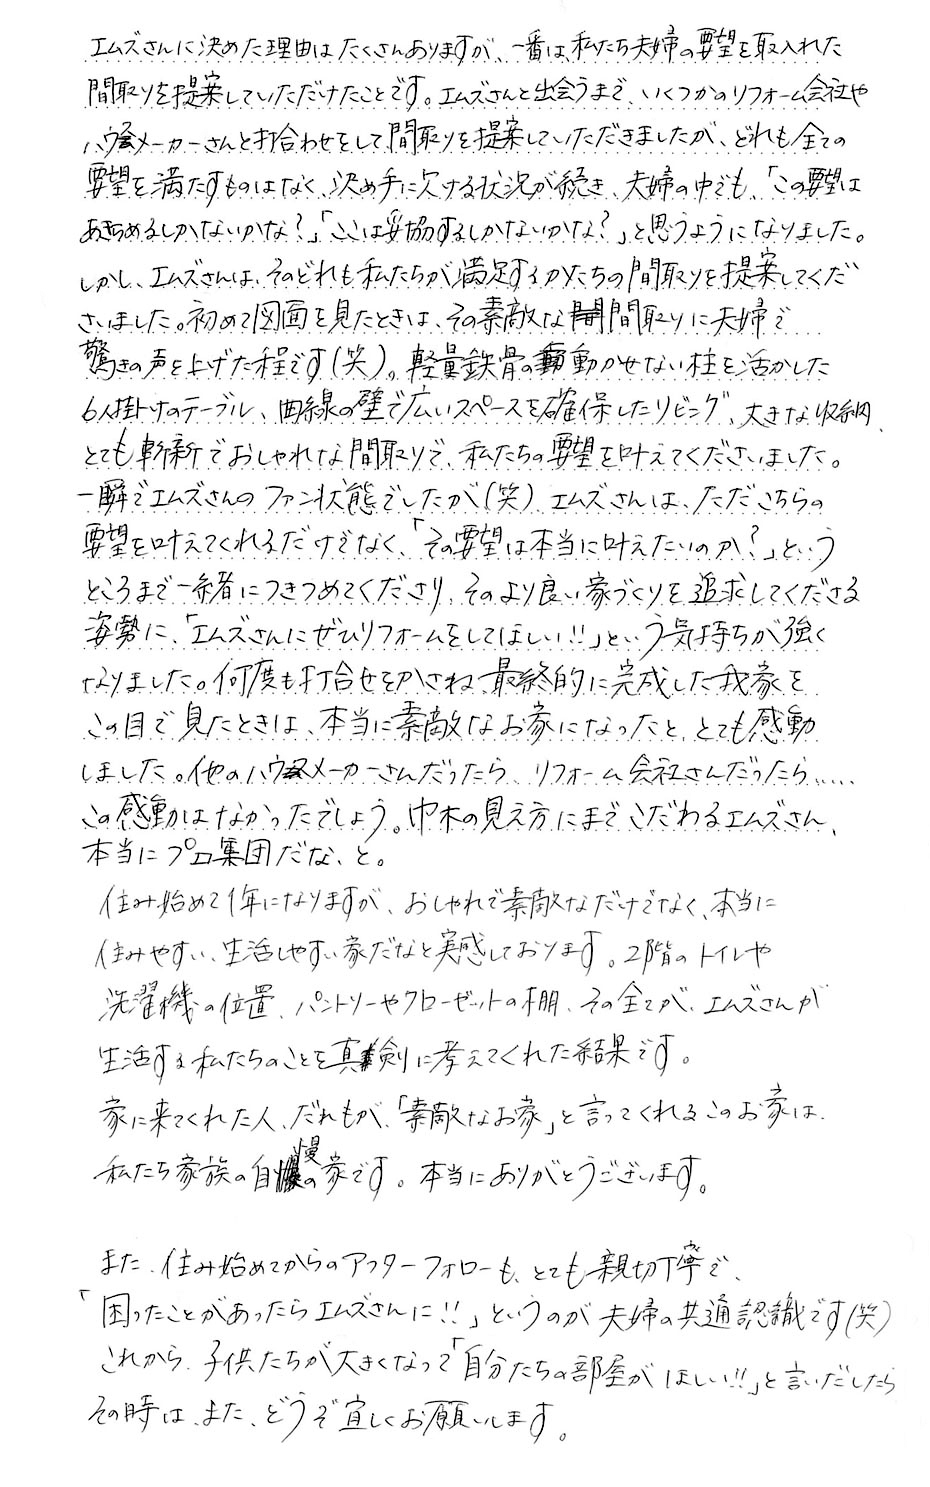 エムズさんに決めた理由はたくさんありますが、一番は、私たち夫婦の要望を取入れた
間取りを提案していただけたことです。エムズさんと出会うまで、いくつかのリフォーム会社や
ハウスメーカーさんと打合わせをして間取りを提案していただきましたが、どれも全ての
要望を満たすものはなく、決め手に欠ける状況が続き、夫婦の中でも、「この要望は
あきらめるしかないかな？」「ここは妥協するしかないかな？」と思うようになりました。
しかし、エムズさんは、そのどれも私たちが満足するかたちの間取りを提案してくだ
さいました。初めて図面を見たときは、その素敵な間取りに夫婦で
驚きの声を上げた程です(笑)。軽量鉄骨の動かせない柱を活かした
6人掛けのテーブル、曲線の壁で広いスペースを確保したリビング、大きな収納、
とても斬新でおしゃれな間取りで、私たちの要望を叶えてくださいました。
一瞬でエムズさんのファン状態でしたが(笑)、エムズさんは、ただこちらの
要望を叶えてくれるだけでなく、「その要望は本当に叶えたいのか？」という
ところまで一緒につきつめてくださり、そのより良い家づくりを追求してくださる
姿勢に、「エムズさんにぜひリフォームをしてほしい!!」という気持ちが強く
なりました。何度も打合せをかさね、最終的に完成した我家を
この目で見たときは、本当に素敵なお家になったと、とても感動
しました。他のハウスメーカーさんだったら、リフォーム会社さんだったら.....
この感動はなかったでしょう。巾木の見え方にまでこだわるエムズさん、
本当にプロ集団だな、と。
住み始めて1年になりますが、おしゃれで素敵なだけでなく、本当に
住みやすい、生活しやすい家だなと実感しております。2階のトイレや
洗濯機の位置、パントリーやクローゼットの棚、その全てが、エムズさんが
生活する私たちのことを真剣に考えてくれた結果です。
家に来てくれた人、だれもが、「素敵なお家」と言ってくれるこのお家は、
私たち家族の自慢の家です。本当にありがとうございます。
また、住み始めてからのアフターフォローも、とても親切丁寧で、
「困ったことがあったらエムズさんに!!」というのが夫婦の共通認識です(笑)
これから、子供たちが大きくなって「自分たちの部屋がほしい!!」と言いだしたら
その時は、また、どうぞ宜しくお願いします。